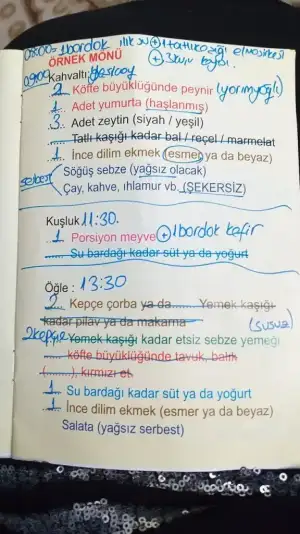 08:00= 1 bardak ılık su + 1 tatlı kaşığı elma sirkesi
ÖRNEK MÖNÜ + 3 kuru kayısı.
09:00 Kahvaltı:
2 Köfte büyüklüğünde peynir (yarım yağlı)
1 Adet yumurta (haşlanmış)
3 Adet zeytin (siyah / yeşil)
...... Tatlı kaşığı kadar bal / reçel / marmelat
1 İnce dilim ekmek (esmer ya da beyaz)
serbest Söğüş sebze (yağsız olacak)
Çay, kahve, ıhlamur vb. (ŞEKERSİZ)
Kuşluk 11:30.
1 Porsiyon meyve + 1 bardak kefir
...... Su bardağı kadar süt ya da yoğurt
Öğle : 13:30
2 Kepçe çorba ya da...... Yemek kaşığı
kadar pilav ya da makarna (susuz)
2 kepçe Yemek kaşığı kadar etsiz sebze yemeği
...... köfte büyüklüğünde tavuk, balık
(......), kırmızı et
1 Su bardağı kadar süt ya da yoğurt
1 İnce dilim ekmek (esmer ya da beyaz)
Salata (yağsız serbest)